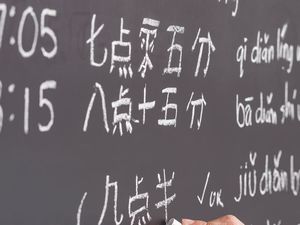 7:05 七点零五分 qī diǎn líng
:15 八点十五分 bā diǎn
九点半 ✓OK jiǔ diǎn